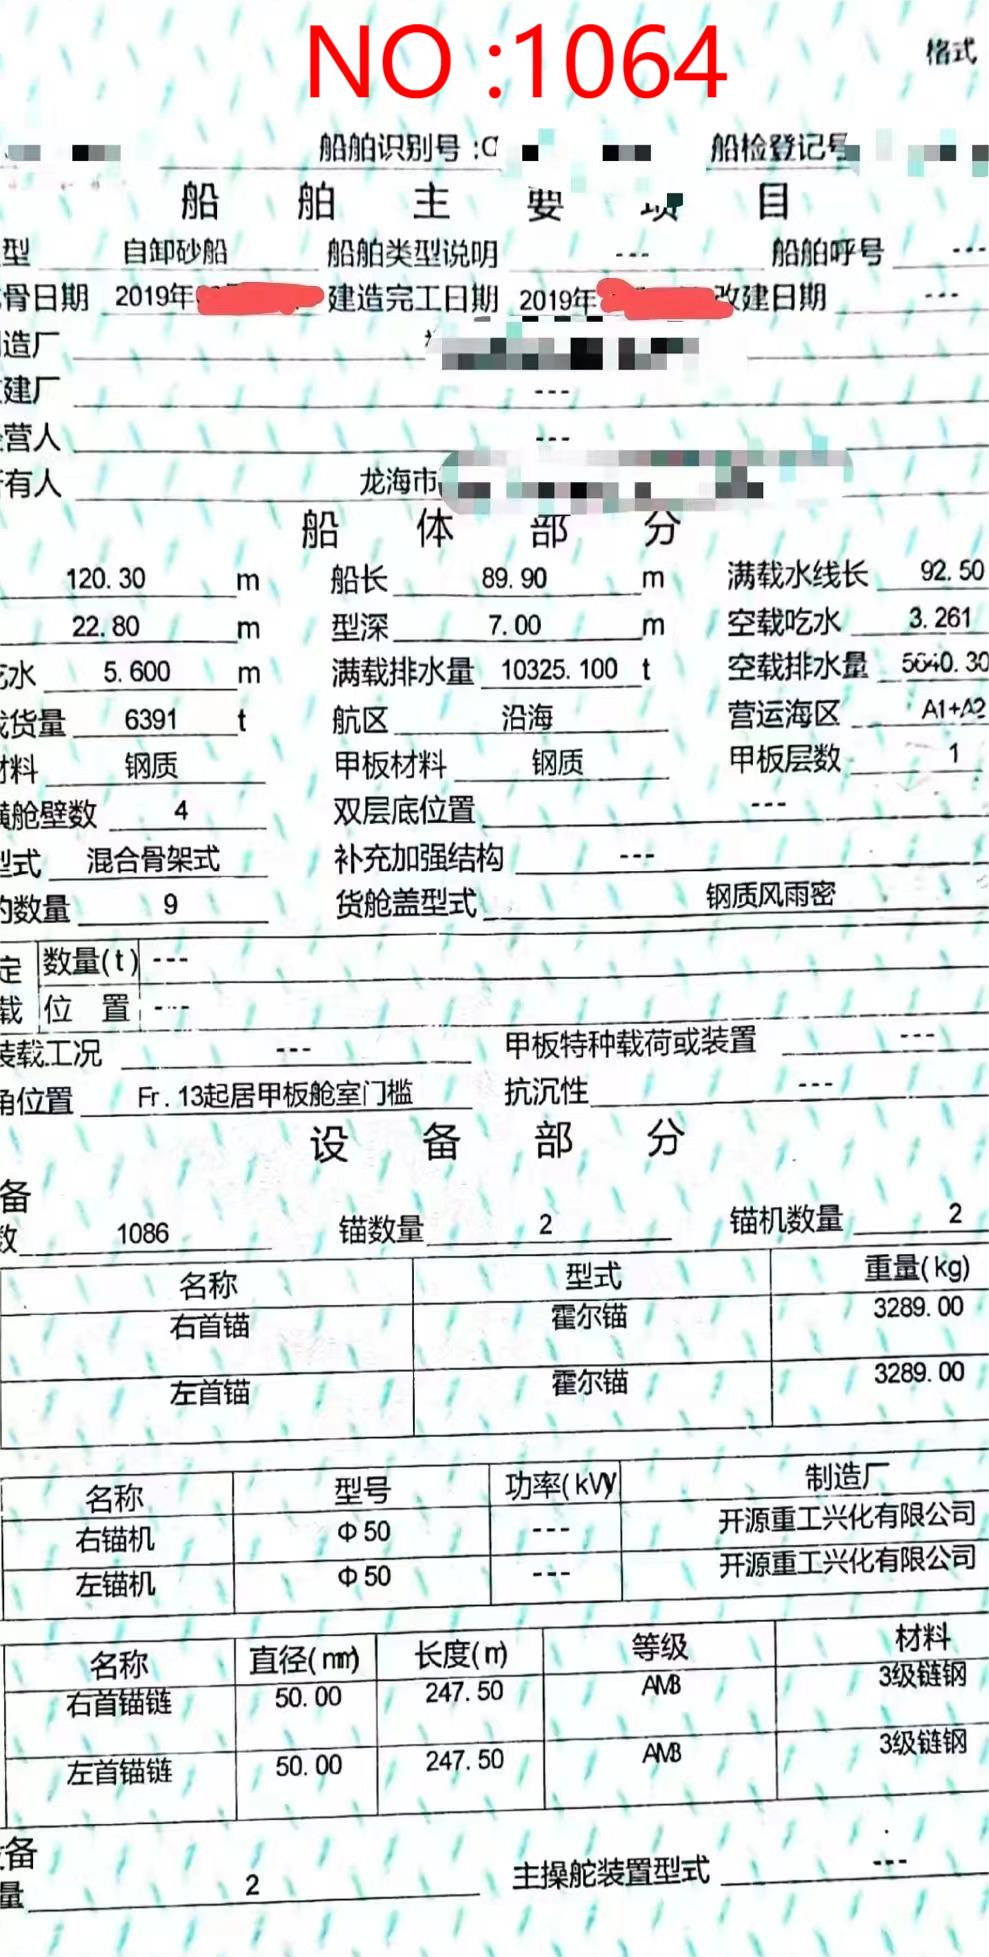 NO :1064
格式
船舶识别号 :C 船检登记号
船舶主要项目
型 自卸砂船 船舶类型说明 --- 船舶呼号 ---
骨日期 2019年 建造完工日期 2019年 改建日期 ---
造厂
建厂 ---
营人 ---
有人 龙海市
船体部分
120.30 m 船长 89.90 m 满载水线长 92.50
22.80 m 型深 7.00 m 空载吃水 3.261
水 5.600 m 满载排水量 10325.100 t 空载排水量 5640.30
货量 6391 t 航区 沿海 营运海区 A1+A2
材料 钢质 甲板材料 钢质 甲板层数 1
横舱壁数 4 双层底位置 ---
型式 混合骨架式 补充加强结构 ---
的数量 9 货舱盖型式 钢质风雨密
定 数量(t) ---
载 位 置 ---
装载工况 --- 甲板特种载荷或装置 ---
角位置 Fr.13起居甲板舱室门槛 抗沉性 ---
设备部分
备
数 1086 锚数量 2 锚机数量 2
名称 型式 重量(kg)
右首锚 霍尔锚 3289.00
左首锚 霍尔锚 3289.00
名称 型号 功率(kW) 制造厂
右锚机 Φ50 --- 开源重工兴化有限公司
左锚机 Φ50 --- 开源重工兴化有限公司
名称 直径(mm) 长度(m) 等级 材料
右首锚链 50.00 247.50 AM3 3级链钢
左首锚链 50.00 247.50 AM3 3级链钢
备
量 2 主操舵装置型式 ---